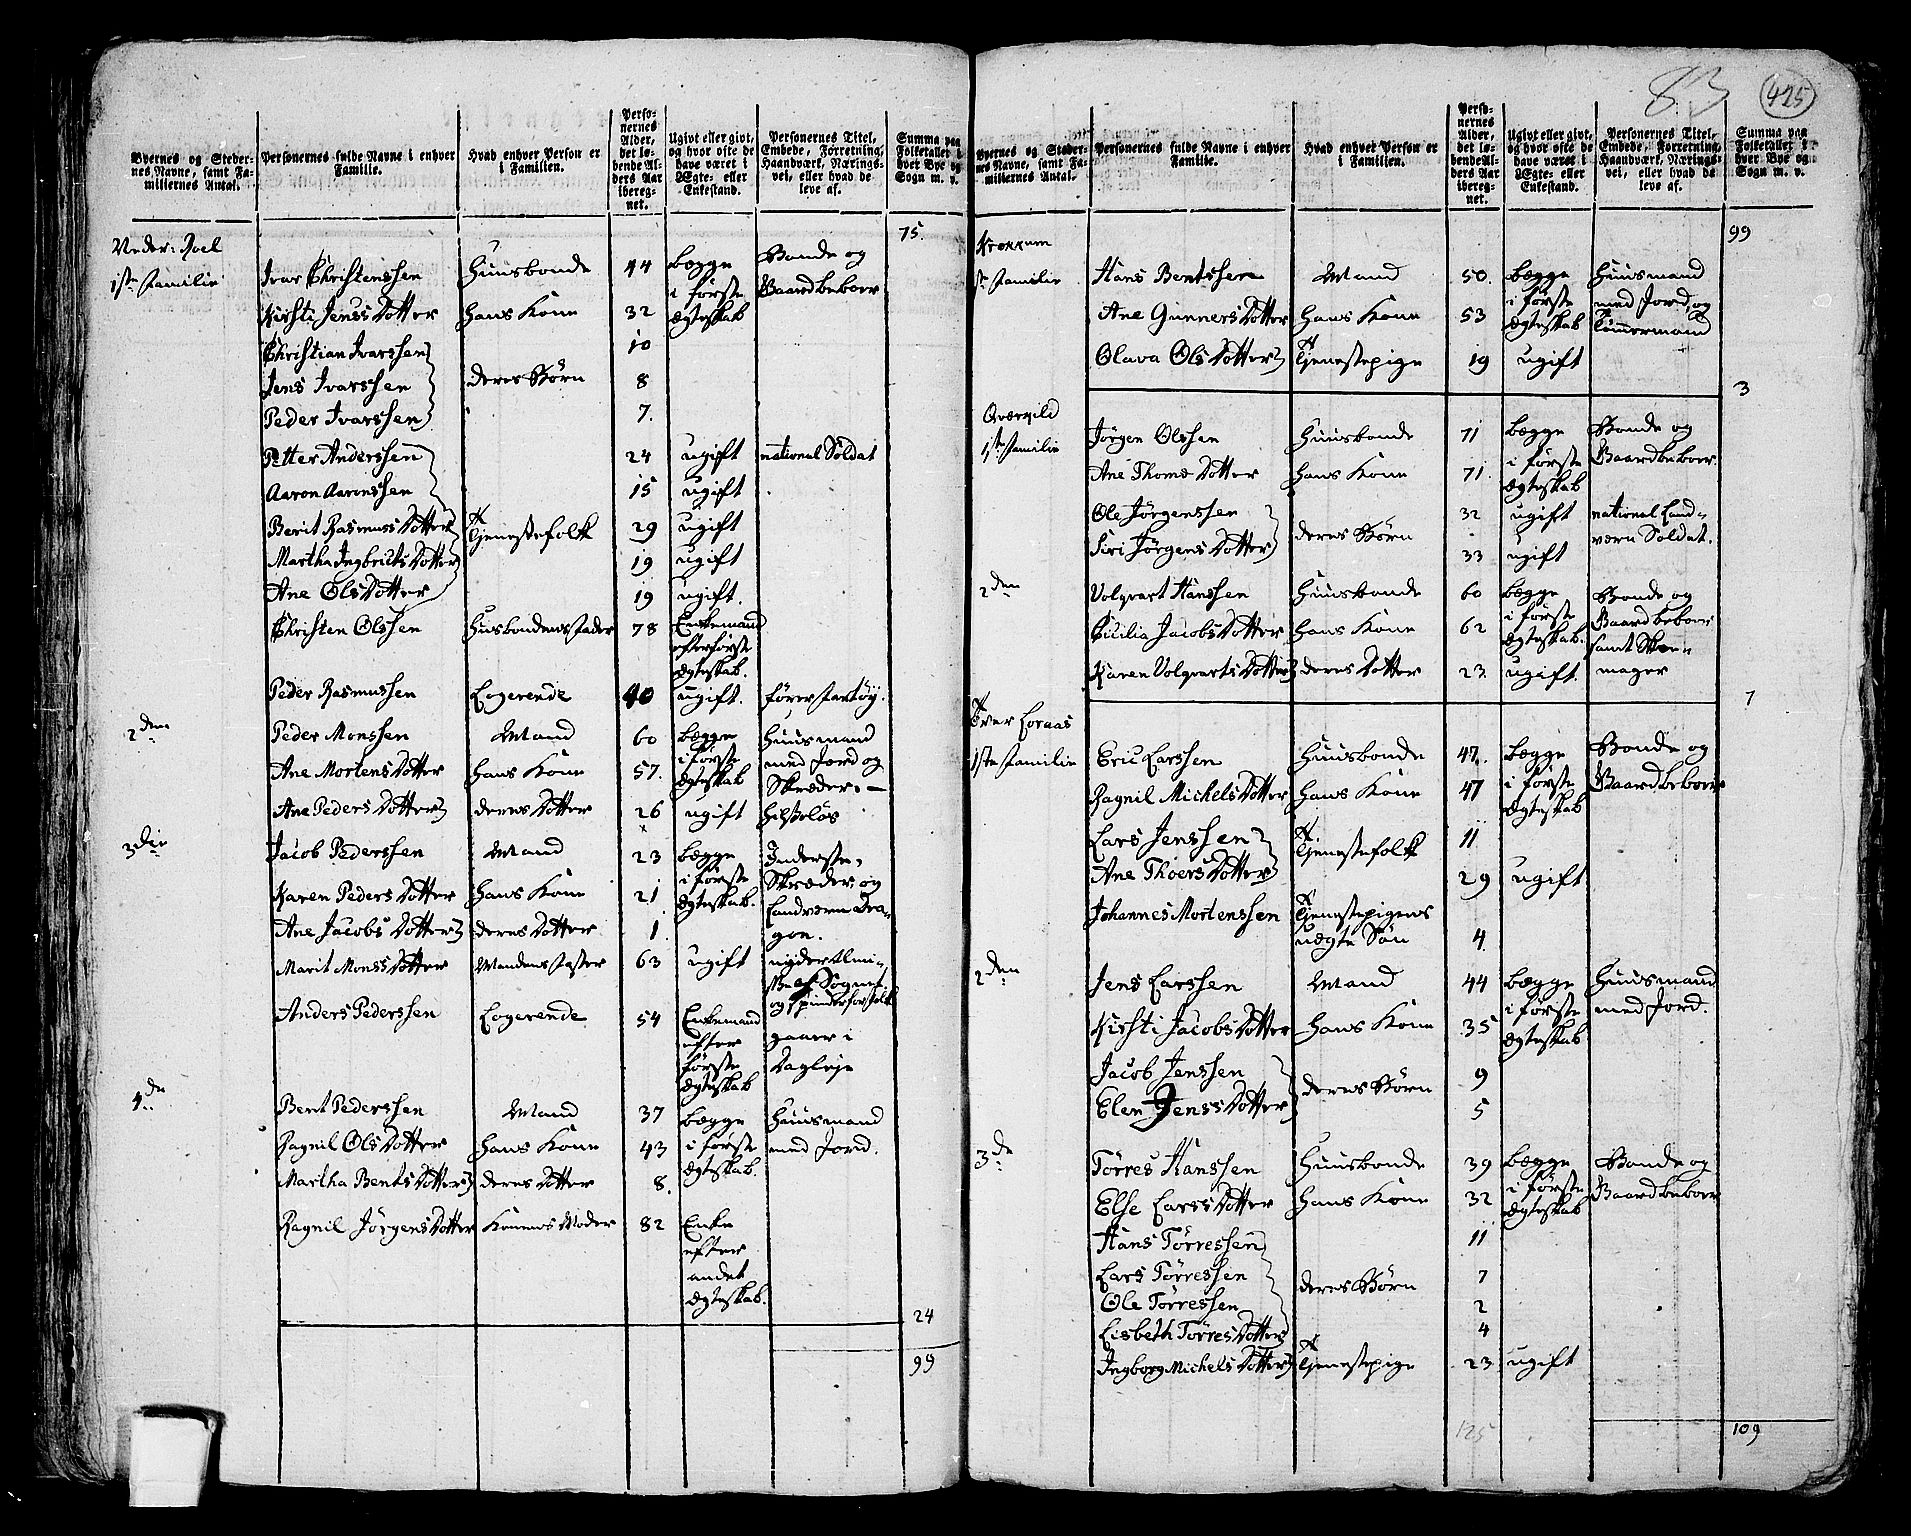 83
425
Byernes og Steder-
nes Navne, samt Fa-
miliernes Antal.
Personernes fulde Navne i enhver
Familie.
Hvad enhver Person er
i Familien.
Perso-
nernes
Alder,
det lø-
bende Al-
ders Aar
ibereg-
net.
Ugivt eller givt,
og hvor ofte de
have været i
Ægte- eller
Enkestand.
Personernes Titel,
Embede, Forretning,
Haandværk, Nærings-
vei, eller hvad de
leve af.
Summa paa
Folketallet i
hver Bye og
Sogn m. v.
75.
Neder: Roel
1ste Familie
Ivar Christenssen Huusbonde 44 begge i første ægteskab Bonde og Gaardbeboer
Kirsti Jenss Dotter hans Kone 32
Christian Ivarssen 10
Jens Ivarssen deres Børn 8
Peder Ivarssen 7.
Petter Anderssen 24 ugift national Soldat
Aaron Aaronssen 15 ugift
Berit Rasmuss Dotter Tjenestefolk 29 ugift
Martha Ingbricts Dotter 19 ugift
Ane Ols Dotter 19 ugift.
Christen Olssen Husbondens Fader 78 Enkemand efter første ægteskab.
Peder Rasmussen Logerende 40 ugift. fører Fartøy.
2den
Peder Monssen Mand 60 begge i første ægteskab Huusmand med Jord og Skræder.
Ane Mortens Dotter hans Kone 57.
Ane Peders Dotter deres Dotter 26 ugift helseløs
3die
Jacob Pederssen Mand 23 begge i første ægteskab. Inderste, Skræder, og Landværn Dragon.
Karen Peders Dotter hans Kone 21
Ane Jacobs Dotter deres Dotter 1.
Marit Monss Dotter Mandens Faster 63 ugift nyder Almisse af Sognet og spinder for Folk
Anders Pederssen Logerende 54 Enkemand efter første ægteskab gaaer i Dagleje
4de
Bent Pederssen Mand 37 begge i første ægteskab. Huusmand med Jord.
Ragnil Ols Dotter hans Kone 43
Martha Bents Dotter deres Dotter 8.
Ragnil Jörgens Dotter Konens Moder 82 Enke efter andet ægteskab.
24
99
Byernes og Steder-
nes Navne, samt Fa-
miliernes Antal.
Personernes fulde Navne i enhver
Familie.
Hvad enhver Person er
i Familien.
Perso-
nernes
Alder,
det lø-
bende Al-
ders Aar
ibereg-
net.
Ugivt eller givt,
og hvor ofte de
have været i
Ægte- eller
Enkestand.
Personernes Titel,
Embede, Forretning,
Haandværk, Nærings-
vei, eller hvad de
leve af.
Summa paa
Folketallet i
hver Bye og
Sogn m. v.
99
Krokkum
1ste Familie
Hans Bentssen Mand 50. begge i første ægteskab Huusmand med Jord, og Timmermand
Ane Gunners Dotter hans Kone 53
Olava Ols Dotter Tjenestepige 19 ugift
3
Qværqild
1ste Familie
Jörgen Olssen Huusbonde 71 begge i første ægteskab Bonde og Gaardbeboer.
Ane Thomæ Dotter hans Kone 71.
Ole Jörgenssen deres Børn 32 ugift national Landværn Soldat.
Siri Jörgens Dotter 33 ugift
2den
Volqvart Hanssen Huusbonde 60 begge i første ægteskab. Bonde og Gaardbeboer samt Skomager
Cicilia Jacobs Dotter hans Kone 62
Karen Volqvarts Dotter deres Dotter 23. ugift.
7
Øver Loraas
1ste Familie
Eric Larssen Huusbonde 47. begge i første ægteskab Bonde og Gaardbeboer
Ragnil Michels Dotter hans Kone 47
Lars Jenssen Tjenestefolk 11
Ane Thoers Dotter 29 ugift
Johannes Mortenssen Tjenestepigens uægte Søn 4
2den
Jens Larssen Mand 44 begge i første ægteskab Huusmand med Jord.
Kirsti Jacobs Dotter hans Kone 35
Jacob Jenssen deres Børn 9
Elen Jenss Dotter 5
3de
Törres Hanssen Huusbonde 39 begge i første ægteskab Bonde og Gaardbeboer
Else Larss Dotter hans Kone 32
Hans Törressen 11
Lars Törressen deres Børn 7
Ole Törressen 2
Lisbeth Törres Dotter 4
Ingborg Michels Dotter Tjenestepige 23 ugift
125
109